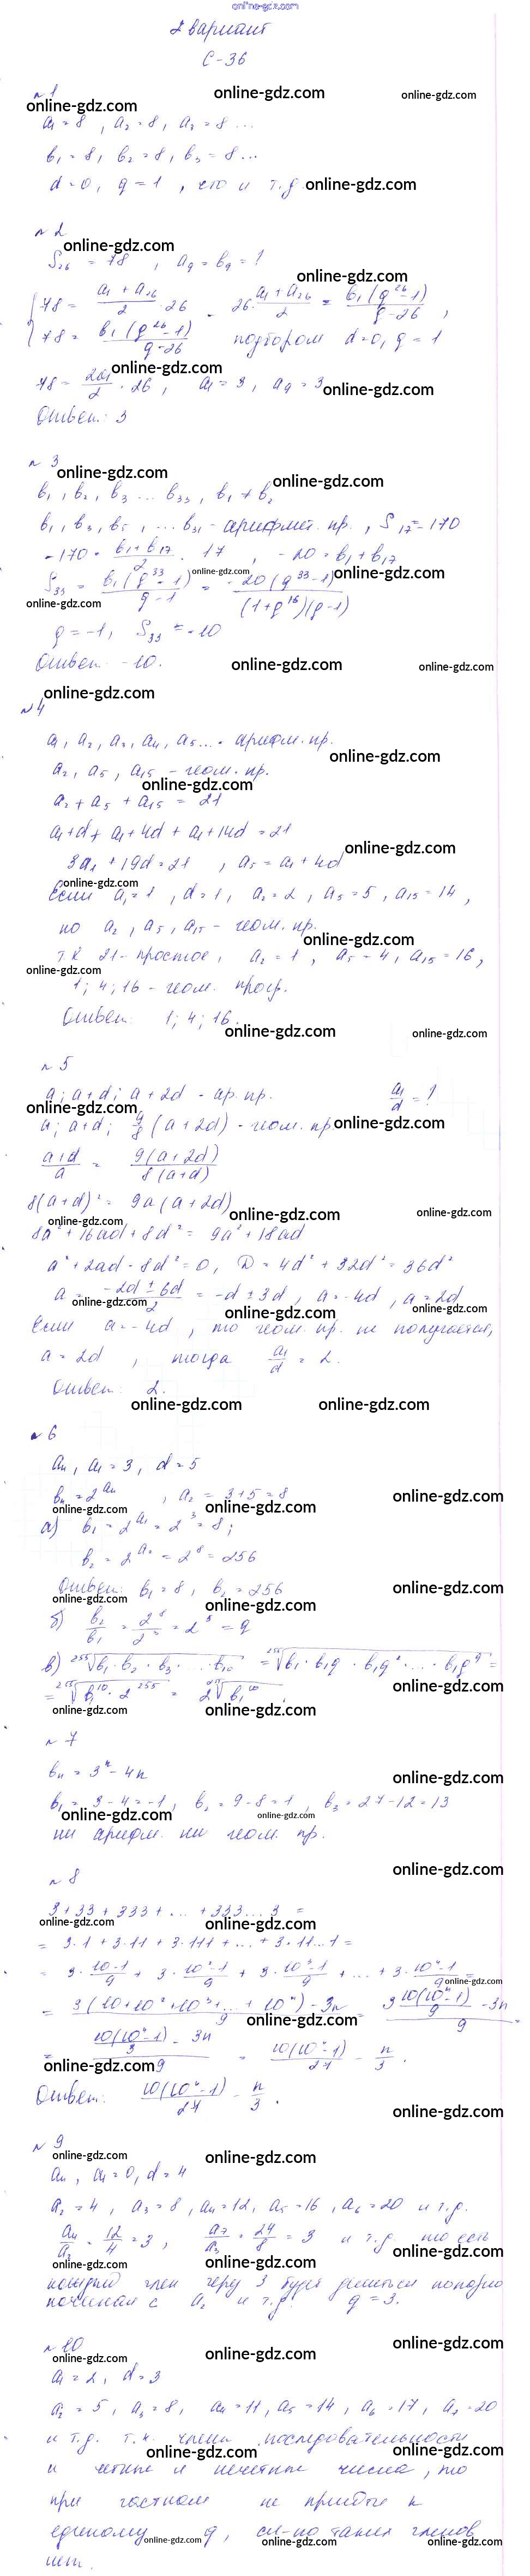 online-gdz.com
2 вариант
С-36
online-gdz.com
online-gdz.com
n 1
online-gdz.com
a₁ = 8 , a₂ = 8, a₃ = 8 ...
b₁ = 8, b₂ = 8, b₃ = 8 ...
d = 0, q = 1 , его и т.д. online-gdz.com
n 2
online-gdz.com
S₂₆ = 78 , a₉ = b₉ = ?
online-gdz.com
78 = (a₁ + a₂₆)/2 · 26 26 · (a₁ + a₂₆)/2 = b₁(q²⁶ - 1)/(q - 26) ,
78 = b₁(q²⁶ - 1)/(q - 26) подбором d = 0, q = 1
online-gdz.com
78 = 2a₁/2 · 26 , a₁ = 3 , a₉ = 3 online-gdz.com
Ответ: 3
n 3
online-gdz.com
online-gdz.com
b₁ , b₂ , b₃ ... b₃₃ , b₁ ≠ b₂
b₁ , b₃ , b₅ , ... b₃₁ - арифмет. пр. , S₁₇ = -170
-170 = (b₁ + b₁₇)/2 · 17 , -20 = b₁ + b₁₇
online-gdz.com
online-gdz.com
S₃₃ = b₁(q³³ - 1)/(q - 1) = -20(q³³ - 1)/((1 + q¹⁶)(q - 1))
online-gdz.com
q = -1, S₃₃ = -10
Ответ: -10.
online-gdz.com
online-gdz.com
online-gdz.com
n 4
a₁, a₂, a₃, a₄, a₅ ... - арифм. пр.
online-gdz.com
a₂ , a₅ , a₁₅ - геом. пр.
online-gdz.com
a₂ + a₅ + a₁₅ = 21
a₁ + d + a₁ + 4d + a₁ + 14d = 21
online-gdz.com
3a₁ + 19d = 21 , a₅ = a₁ + 4d
online-gdz.com
Если a₁ = 1 , d = 1 , a₂ = 2 , a₅ = 5 , a₁₅ = 14 ,
но a₂ , a₅ , a₁₅ - геом. пр.
online-gdz.com
т.к 21 - простое, a₂ = 1 , a₅ = 4 , a₁₅ = 16 ,
online-gdz.com
1; 4; 16 - геом. прогр.
Ответ: 1; 4; 16.
online-gdz.com
online-gdz.com
n 5
a; a+d; a+2d - ар. пр. a₁/d = ?
online-gdz.com
a; a+d; 9/8 (a+2d) - геом. пр online-gdz.com
(a+d)/a = 9(a+2d)/8(a+d)
8(a+d)² = 9a(a+2d)
online-gdz.com
online-gdz.com
8a² + 16ad + 8d² = 9a² + 18ad
a² + 2ad - 8d² = 0, D = 4d² + 32d² = 36d²
a = (-2d ± 6d)/2 = -d ± 3d , a = -4d , a = 2d
online-gdz.com
online-gdz.com
online-gdz.com
Если a = -4d , то геом. пр. не получается,
a = 2d , тогда a₁/d = 2.
Ответ: 2.
online-gdz.com
online-gdz.com
n 6
aₙ , a₁ = 3 , d = 5
online-gdz.com
bₙ = 2^aₙ , a₂ = 3+5 = 8
online-gdz.com
online-gdz.com
а) b₁ = 2^a₁ = 2³ = 8;
b₂ = 2^a₂ = 2⁸ = 256
online-gdz.com
Ответ: b₁ = 8, b₂ = 256
online-gdz.com
online-gdz.com
б) b₂/b₁ = 2⁸/2³ = 2⁵ = q
в) ²⁵⁵√(b₁ · b₂ · b₃ · ... · b₁₀) = ²⁵⁵√(b₁ · b₁q · b₁q² · ... · b₁q⁹) =
online-gdz.com
= ²⁵⁵√(b₁¹⁰ · 2²⁵⁵) = 2 ²⁵⁵√(b₁¹⁰)
online-gdz.com
online-gdz.com
n 7
bₙ = 3ⁿ - 4n
online-gdz.com
b₁ = 3 - 4 = -1, b₂ = 9 - 8 = 1 , b₃ = 27 - 12 = 13
online-gdz.com
online-gdz.com
ни арифм. ни геом. пр.
online-gdz.com
n 8
3 + 33 + 333 + ... + 333...3 =
online-gdz.com
online-gdz.com
= 3·1 + 3·11 + 3·111 + ... + 3·11...1 =
= 3 · (10-1)/9 + 3 · (10²-1)/9 + 3 · (10³-1)/9 + ... + 3 · (10ⁿ-1)/9 =
online-gdz.com
= (3(10 + 10² + 10³ + ... + 10ⁿ) - 3n)/9 = (3 · 10(10ⁿ-1)/9 - 3n)/9 =
online-gdz.com
= (10(10ⁿ-1)/3 - 3n)/9 = 10(10ⁿ-1)/27 - n/3 .
online-gdz.com
Ответ: 10(10ⁿ-1)/27 - n/3 .
online-gdz.com
n 9
online-gdz.com
online-gdz.com
aₙ , a₁ = 0, d = 4
a₂ = 4 , a₃ = 8 , a₄ = 12, a₅ = 16 , a₆ = 20 и т.д.
a₄/a₂ = 12/4 = 3 , a₇/a₃ = 24/8 = 3 и т.д. то есть
online-gdz.com
online-gdz.com
online-gdz.com
каждый член через 3 будет делиться попарно
начиная с a₂ и т.д. q = 3.
online-gdz.com
n 10
online-gdz.com
online-gdz.com
a₁ = 2 , d = 3
a₂ = 5 , a₃ = 8, a₄ = 11 , a₅ = 14 , a₆ = 17 , a₇ = 20
и т.д. т.к. члены последовательности
online-gdz.com
online-gdz.com
и четные и нечетные числа, то
при частном не придёте к
единому q, сл-но таких членов
online-gdz.com
online-gdz.com
online-gdz.com
нет.